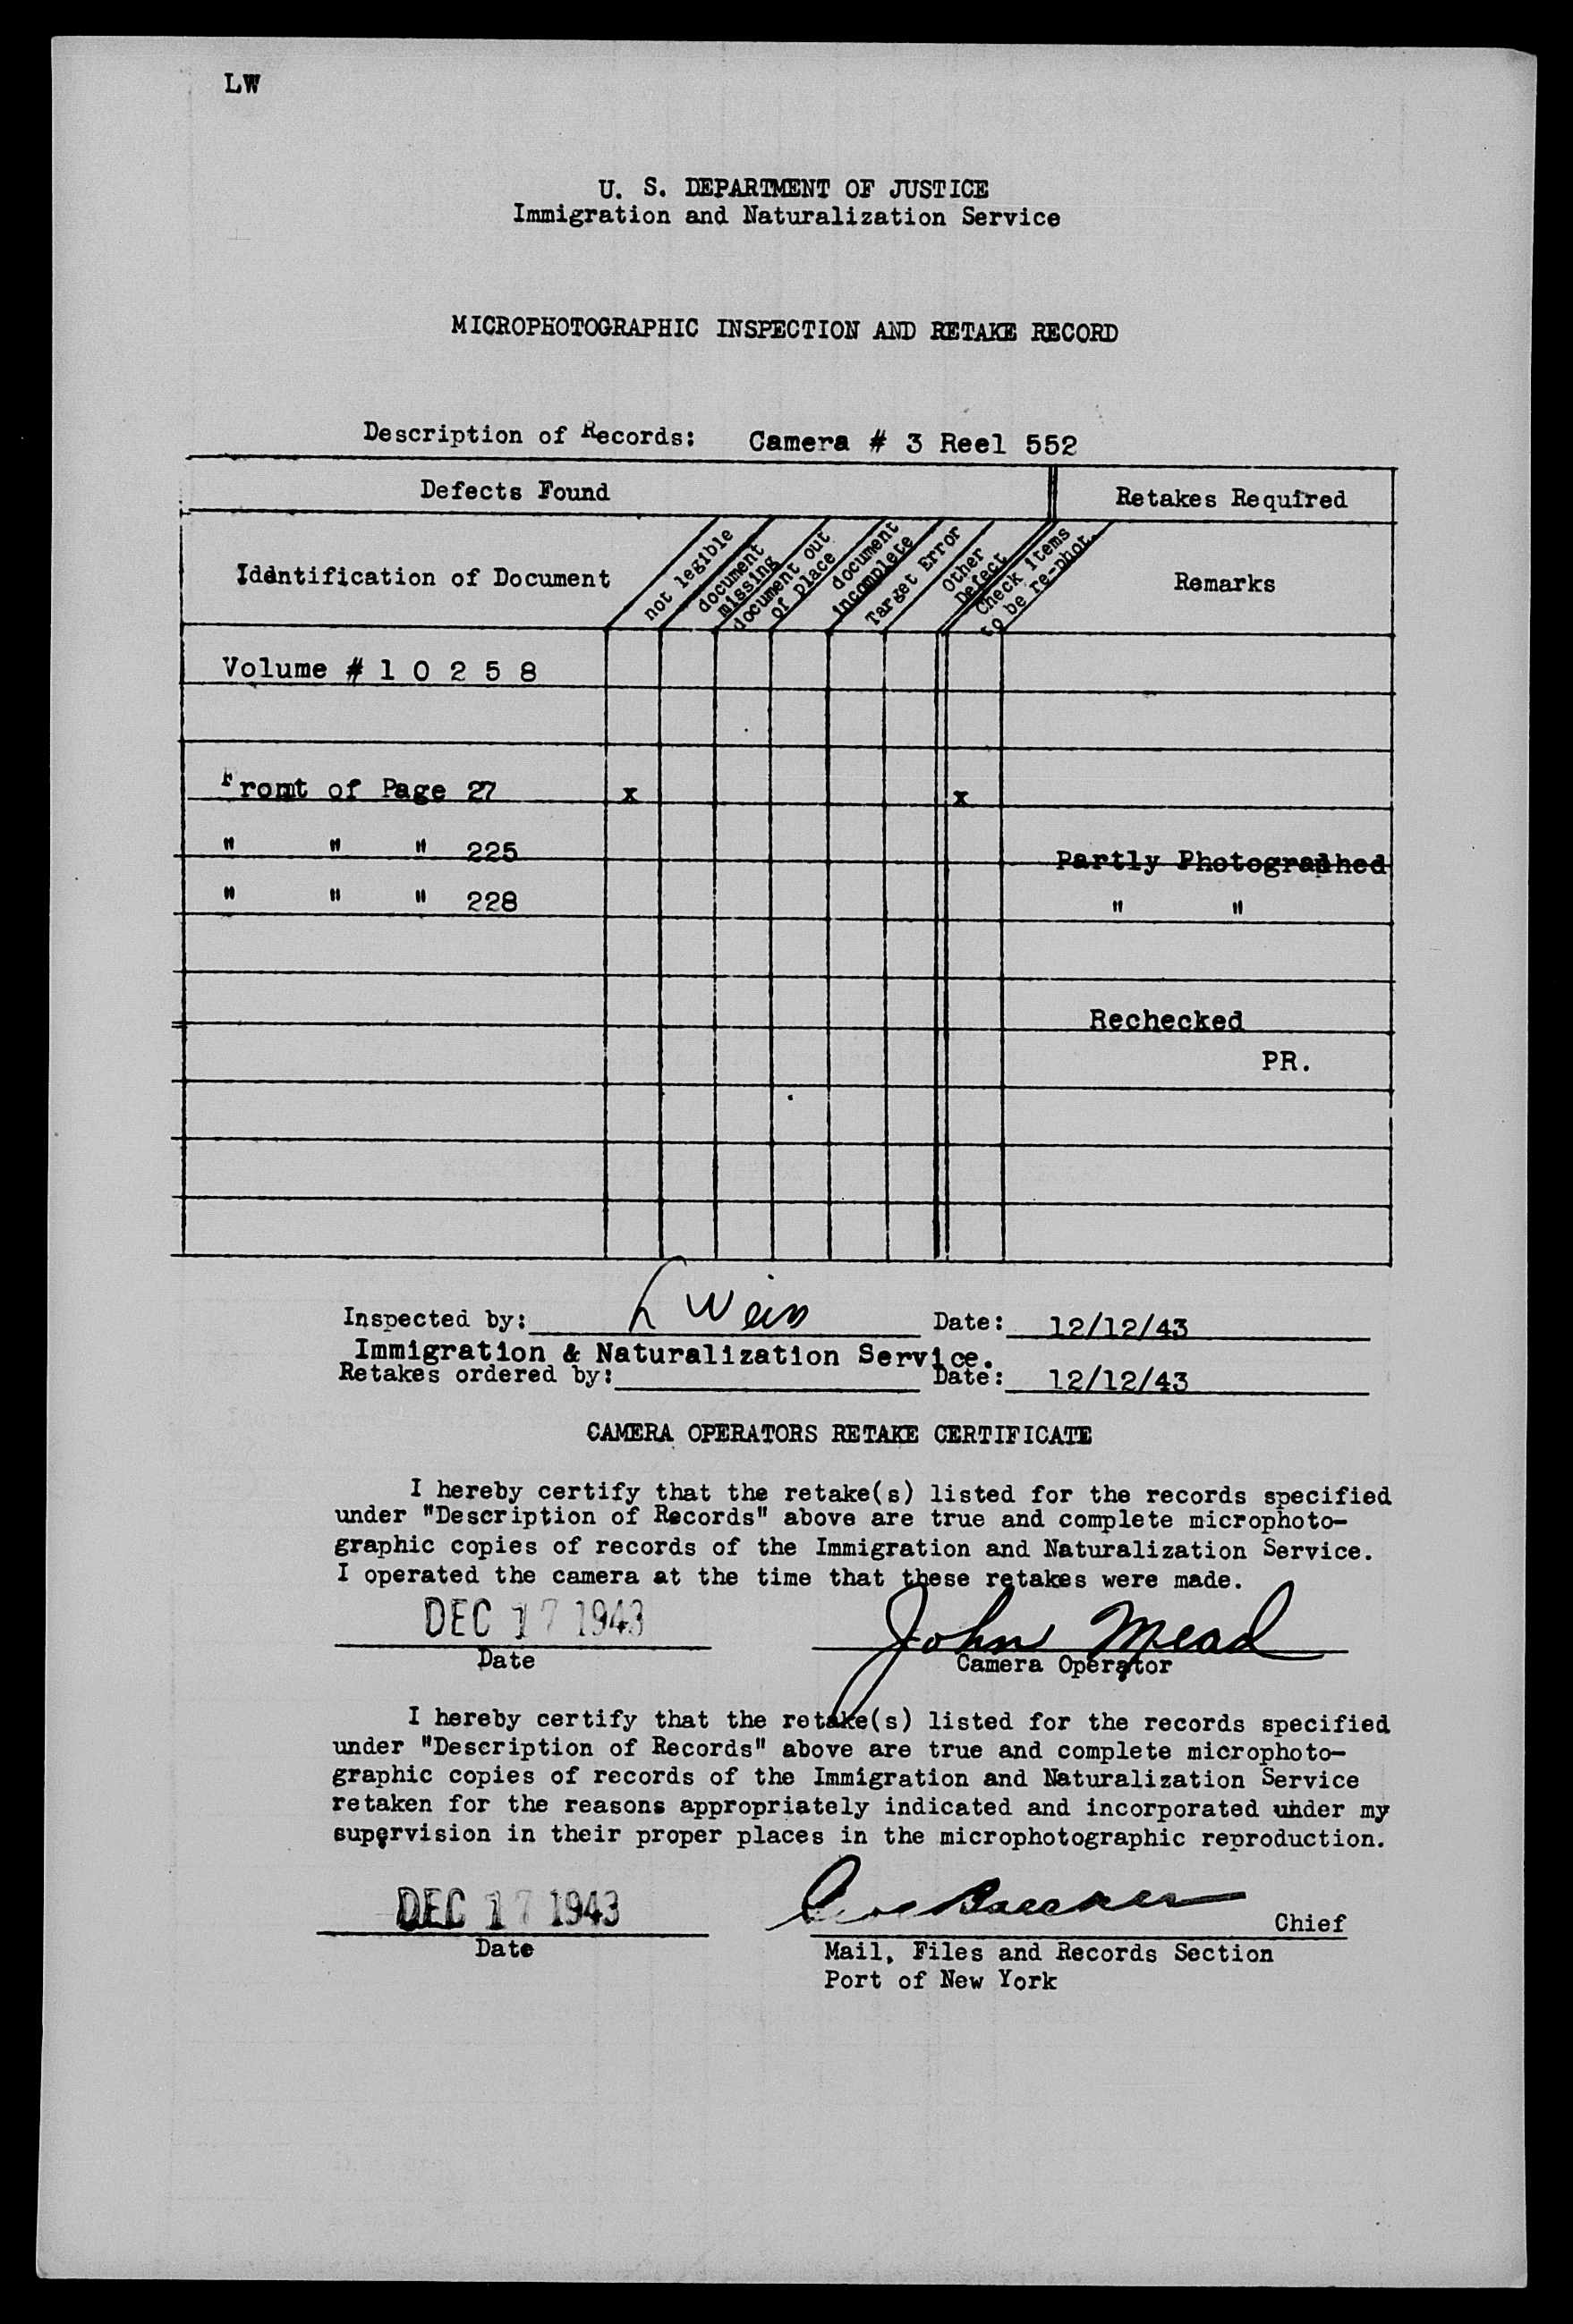 LW
U. S. DEPARTMENT OF JUSTICE
Immigration and Naturalization Service
MICROPHOTOGRAPHIC INSPECTION AND RETAKE RECORD
Description of Records: Camera # 3 Reel 552
Defects Found Retakes Required
Iddntification of Document
not legible
document missing
document out of place
document incomplete
Target Error
Other Defect
Check items to be re-phot.
Remarks
Volume # 1 0 2 5 8
Fromt of Page 27 x x
" " " 225 Partly Photographed
" " " 228 " "
Rechecked
PR.
Inspected by: L Weiss Date: 12/12/43
Immigration & Naturalization Service.
Retakes ordered by: Date: 12/12/43
CAMERA OPERATORS RETAKE CERTIFICATE
I hereby certify that the retake(s) listed for the records specified
under "Description of Records" above are true and complete microphoto-
graphic copies of records of the Immigration and Naturalization Service.
I operated the camera at the time that these retakes were made.
DEC 17 1943 John Mead
Date Camera Operator
I hereby certify that the retake(s) listed for the records specified
under "Description of Records" above are true and complete microphoto-
graphic copies of records of the Immigration and Naturalization Service
retaken for the reasons appropriately indicated and incorporated under my
supervision in their proper places in the microphotographic reproduction.
DEC 17 1943 Chief
Date Mail, Files and Records Section
Port of New York